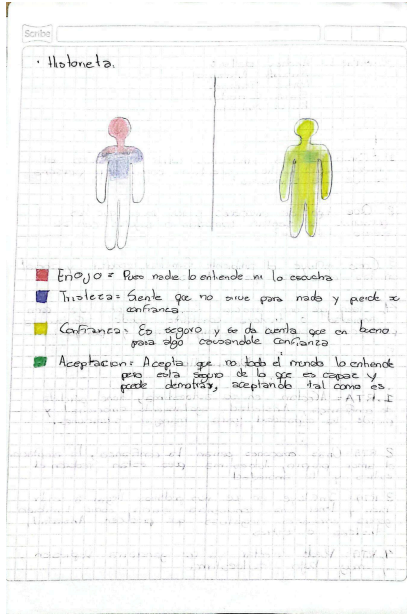 Scribe
• Historieta.
Enojo = Pues nadie lo entiende ni lo escucha
Tristeza = Siente que no sirve para nada y pierde
confianza
Confianza = Es seguro y se da cuenta que en bueno
para algo causandole confianza
Aceptacion = Acepta que no todo el mundo lo entiende
pero esta seguro de lo que es capaz y
puede demostrar, aceptando tal como es.